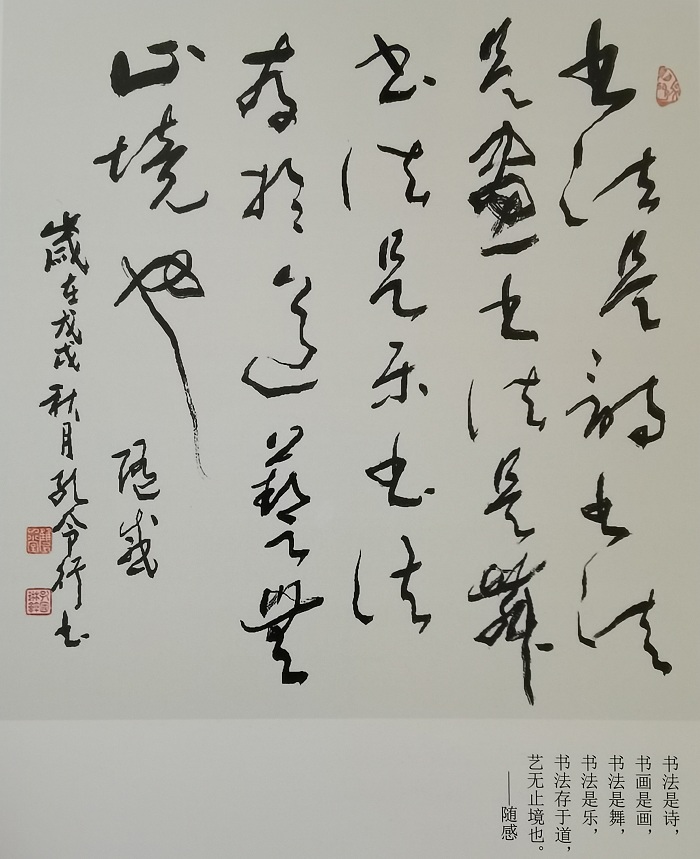 书法是詩书法
是畫书法是舞
书法是乐书法
存於道藝無
止境也
随感
歲在戊戌秋月孔令行书
书法是诗，
书画是画，
书法是舞，
书法是乐，
书法存于道，
艺无止境也。
——随感